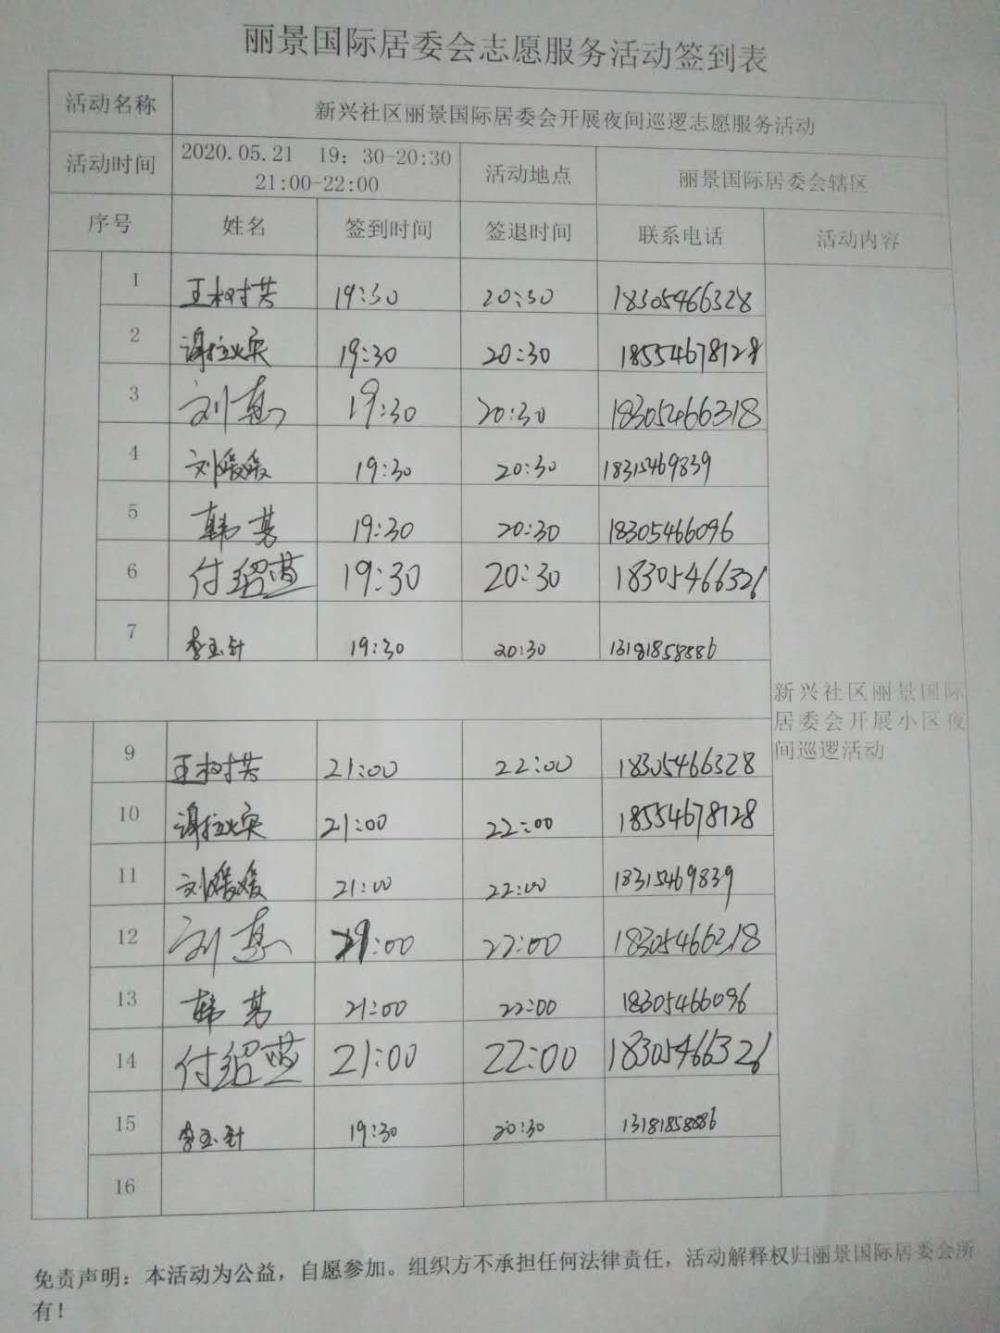 丽景国际居委会志愿服务活动签到表
活动名称 新兴社区丽景国际居委会开展夜间巡逻志愿服务活动
活动时间 2020.05.21 19：30-20:30 活动地点 丽景国际居委会辖区
21:00-22:00
序号 姓名 签到时间 签退时间 联系电话 活动内容
1 王树芸 19:30 20:30 18305466328
2 19:30 20:30 18554678128
3 刘惠 19:30 20:30 18305466318
4 刘媛媛 19:30 20:30 18315469839
5 韩芳 19:30 20:30 18305466096
6 付绍燕 19:30 20:30 18305466326
7 李玉针 19:30 20:30 13181858886
新兴社区丽景国际
居委会开展小区夜
间巡逻活动
9 王树芸 21:00 22:00 18305466328
10 21:00 22:00 18554678128
11 刘媛媛 21:00 22:00 18315469839
12 刘惠 21:00 22:00 18305466218
13 韩芳 21:00 22:00 18305466096
14 付绍燕 21:00 22:00 18305466326
15 李玉针 19:30 20:30 13181858886
16
免责声明：本活动为公益，自愿参加。组织方不承担任何法律责任，活动解释权归丽景国际居委会所
有！